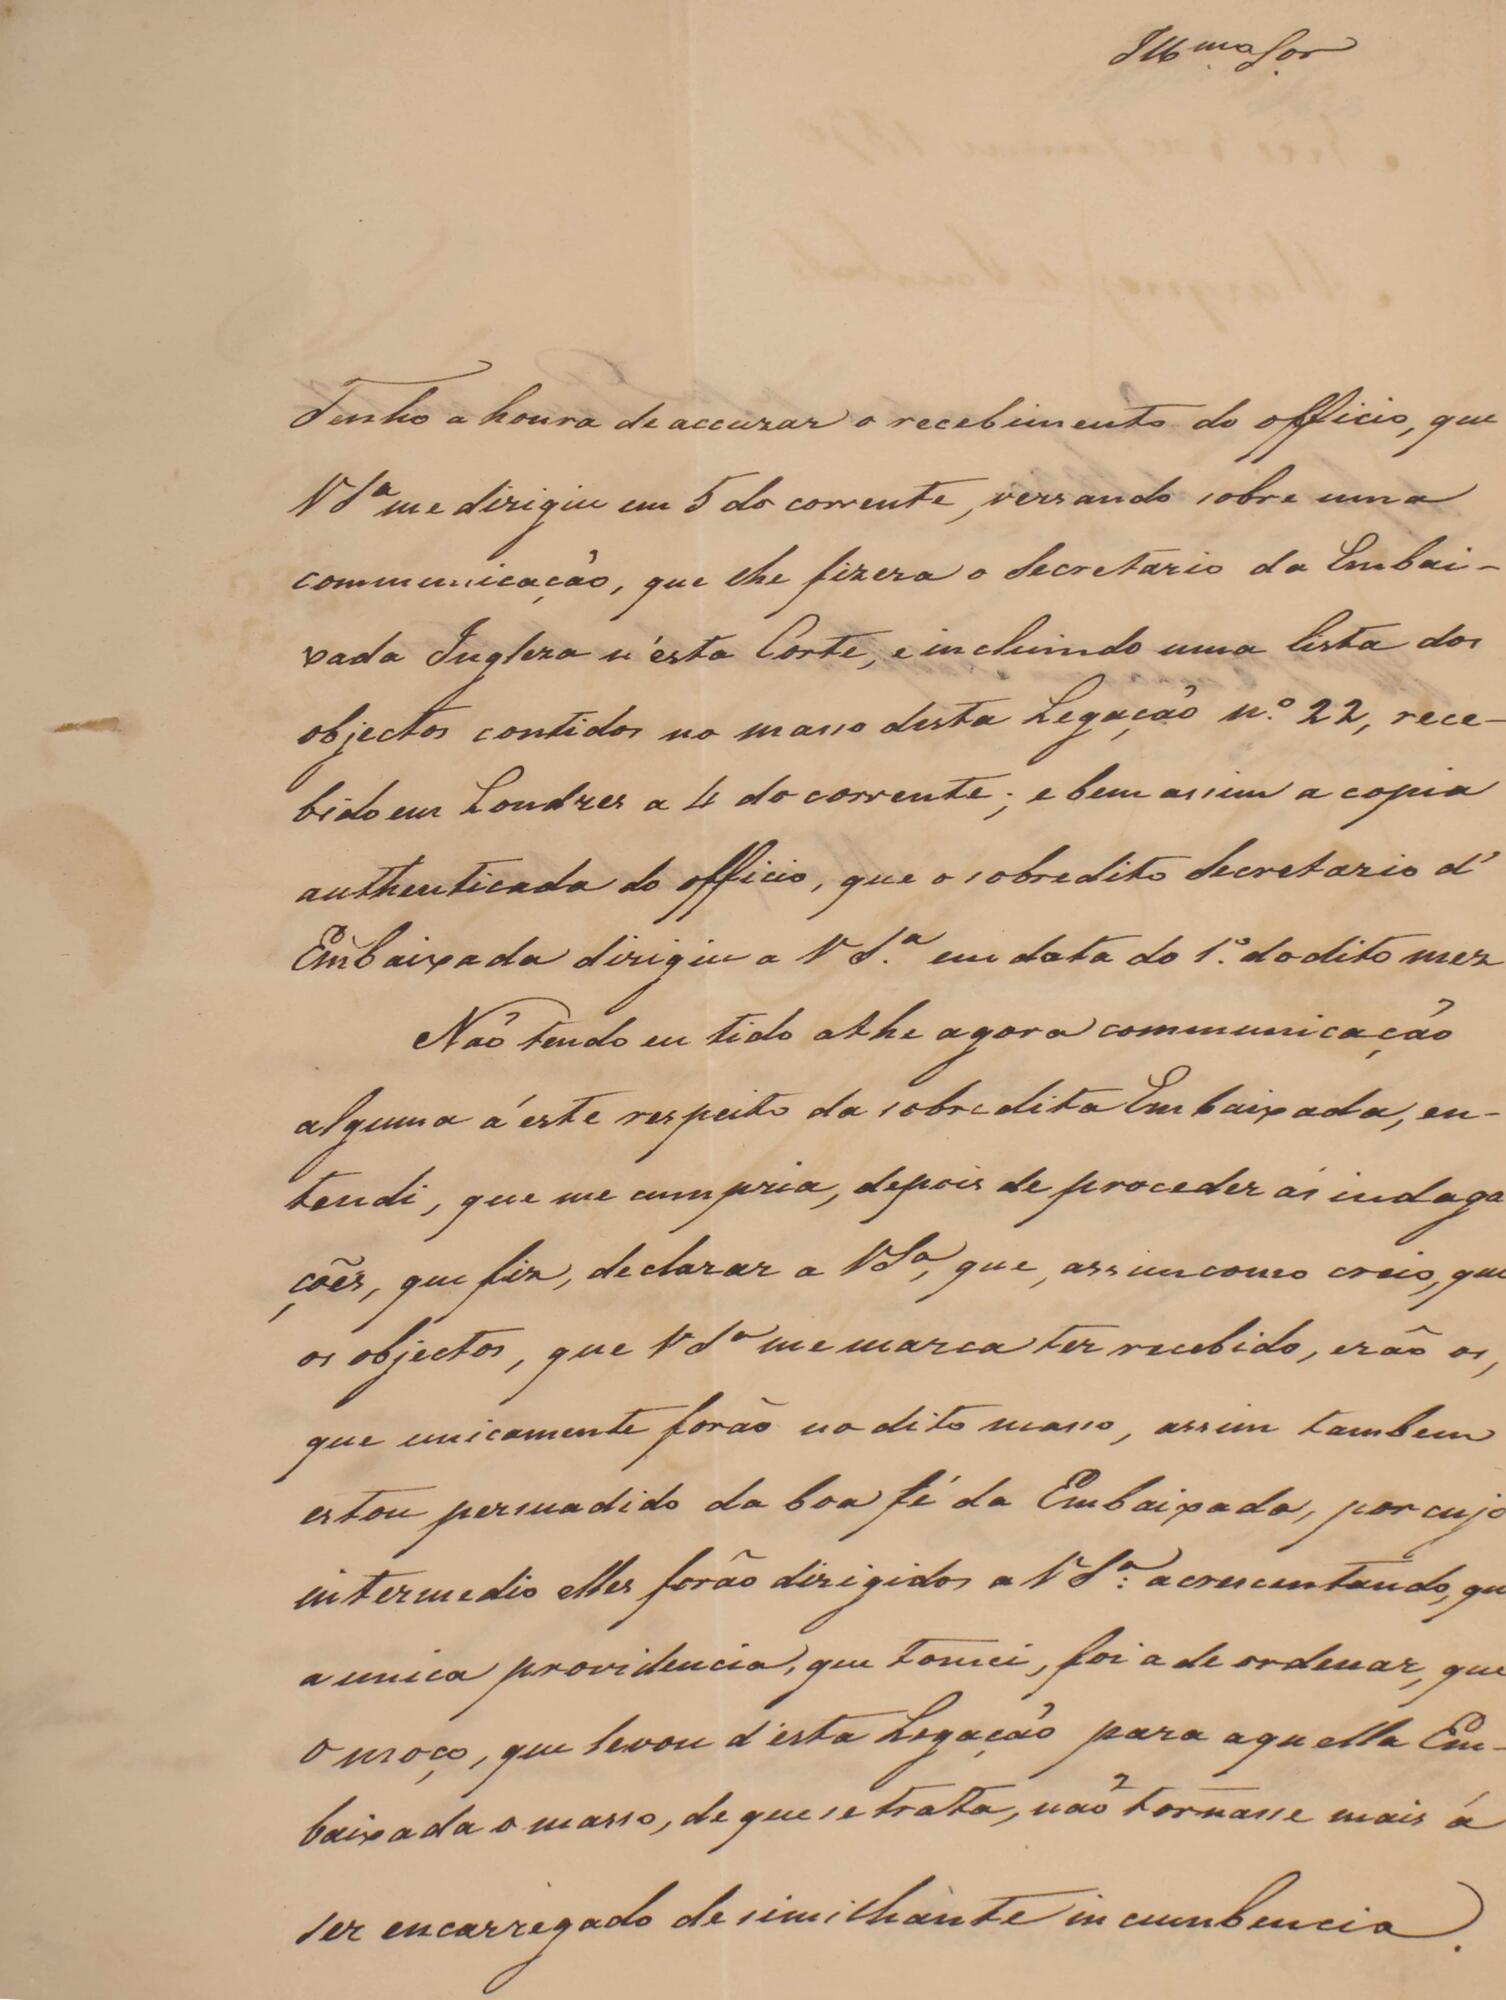 Ill.mo Sor
Tenho a honra de accuzar o recebimento do officio, que
V Sª me dirigiu em 5 do corrente, versando sobre uma
communicação, que lhe fizera o Secretario da Embai-
xada Ingleza n'ésta Corte, e incluindo uma lista dos
objectos contidos no masso desta Legação n.º 22, rece-
bido em Londres a 4 do corrente; e bem assim a copia
authenticada do officio, que o sobredito Secretario d'
Embaixada dirigiu a V S.ª em data do 1.º do dito mez
Não tendo eu tido athe agora communicação
alguma á éste respeito da sobredita Embaixada, en-
tendi, que me cumpria, depois de proceder ás indaga
ções, que fiz, declarar a V Sª, que, assim como creio, que
os objectos, que V Sª me marca ter recebido, erão os,
que unicamente forão no dito masso, assim tambem
estou persuadido da boa fé da Embaixada, por cujo
intermedio elles forão dirigidos a V S.ª: acrescentando, qu
a unica providencia, que tomei, foi a de ordenar, que
o moço, que levou d'ésta Legação para aquella Em-
baixada o masso, de que se trata, não tornasse mais á
ser encarregado de similhante incumbencia.